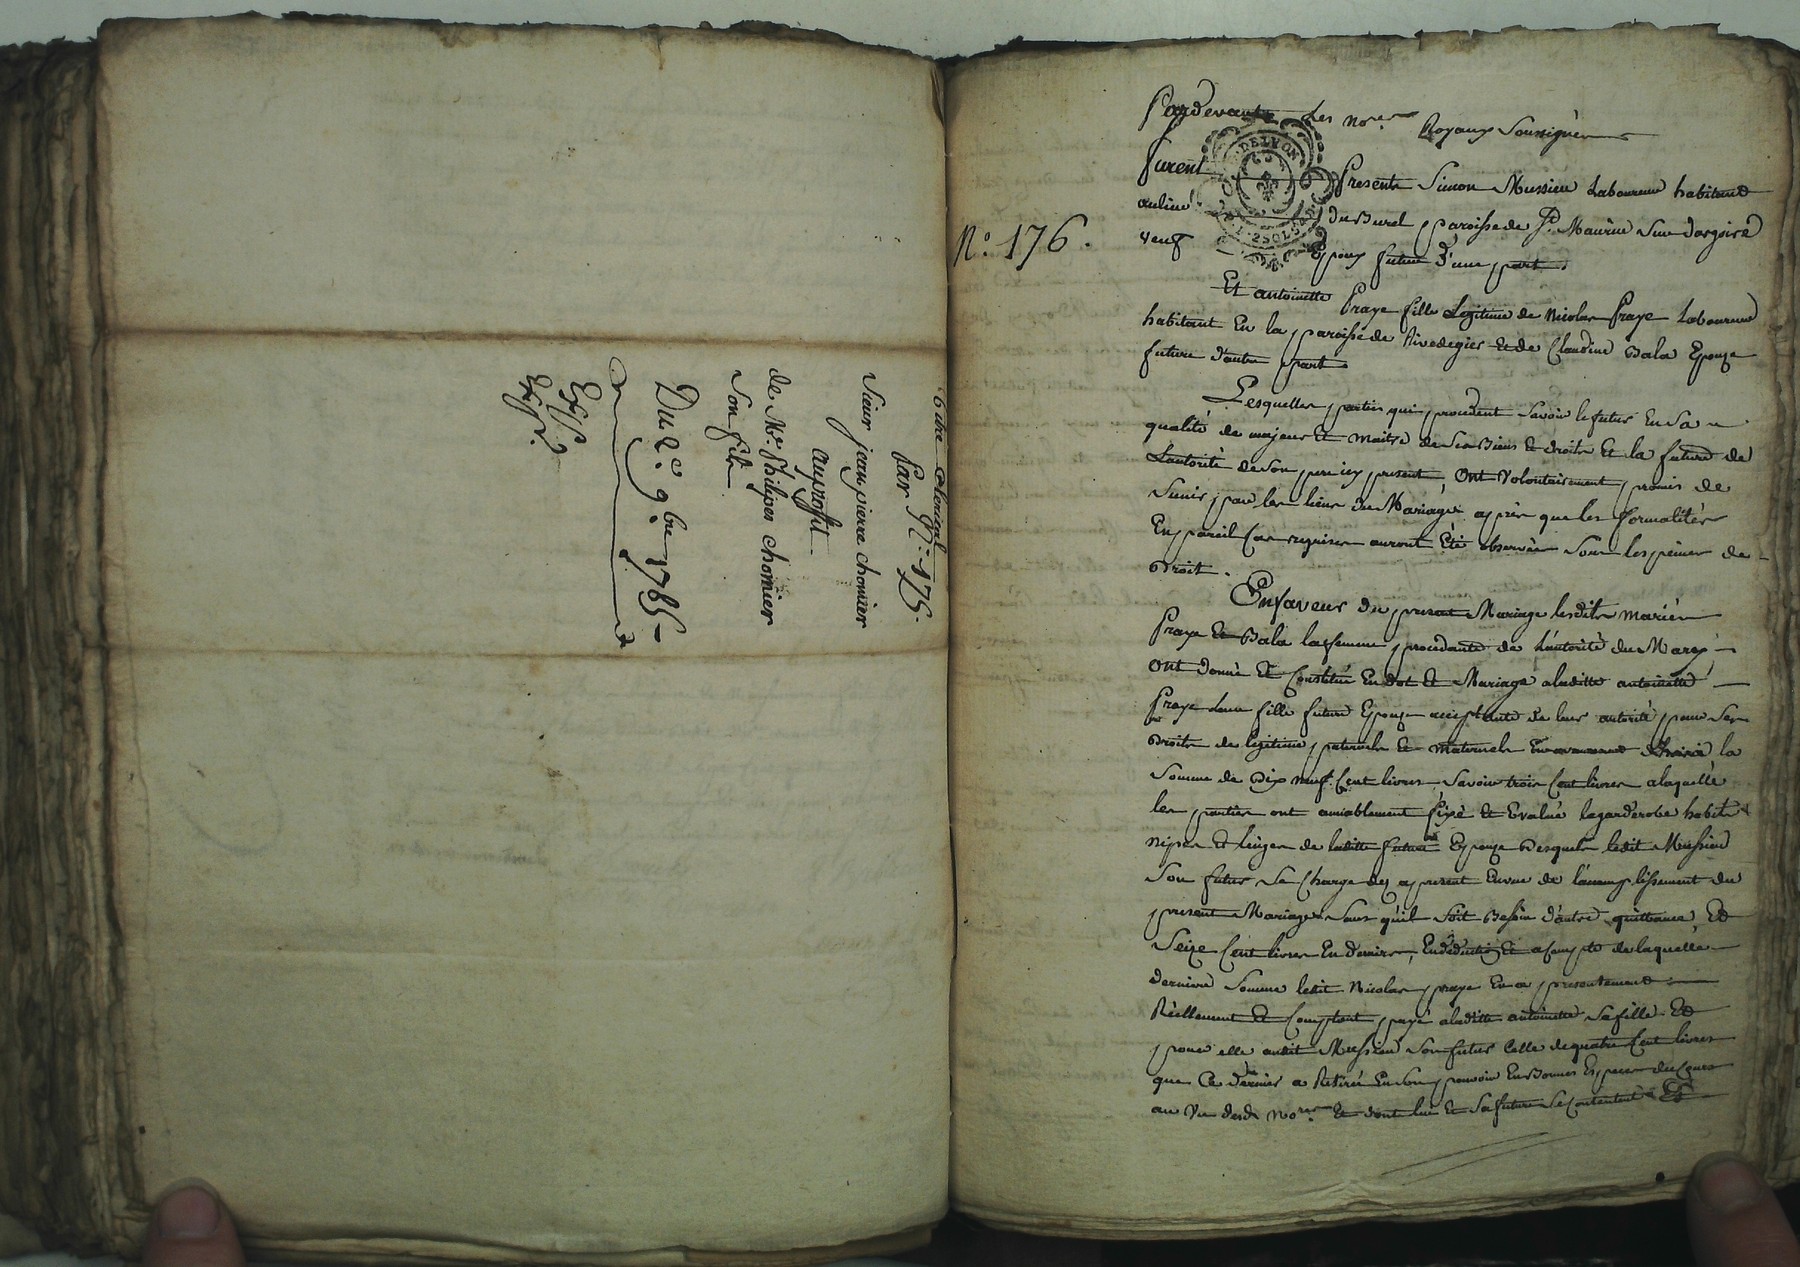 titre clerical
Par N.° 175.
Sieur jean pierre chomier
au profit
de Me. Philipes chomier
Son fils
Du 2e. 9bre 1785
Exp.
N.° 176.
Pardevant Les nores. Royaux Soussignés
furent Present Simon Mussieu Laboureur habitant
au lieu du Burel paroisse de St. Maurice Sur dargoire
veuf Epoux futur d'une part.
Et antoinette Praye fille Legitime de Nicolas Praye Laboureur
habitant En la paroisse de Rivedegier et de Claudine Bala Epouze
future d'autre part
Lesquelles parties qui procedent Savoir le futur En Sa
qualité de majeur Et maitre de Ses Biens et droits Et la future de
L'autorité de Son pere icy present, Ont Volontairement promis de
S'unir par les liens du Mariage après que les formalités
En pareil Cas requises auront Eté observées Sous les peines de
Droit.
En faveur du present Mariage lesdits mariés
Praye Et Bala la femme procedante de L'autorité du Mary
Ont donné Et Constitué En dot Et Mariage a laditte antoinette
Praye leur fille future Epouze acceptante de leur autorité pour Ses
Droits de legitime paternels Et maternels la
Somme de Dix neuf Cent livres, Savoir trois Cent livres a laquelle
les parties ont amiablement fixé Et Evalué la garderobe habits
nipes Et linges de laditte future Epouze Desquels ledit Mussieu
Son futur Se Charge dez a present En vue de l'accomplissement du
present Mariage Sans qu'il Soit Besoin d'autre quittance Et
Seize Cent livres En deniers, En deduction Et acompte de laquelle
derniere Somme ledit Nicolas praye En a presentement
Réellement Et Comptant payé a laditte antoinette Sa fille Et
pour elle audit Mussieu Son futur Celle de quatre Cent livres
que Ce dernier a Retiré En Son pouvoir En Bonnes Especes du Cours
au Vu desd. nores. Et dont lui Et Sa future Se Contentent Et